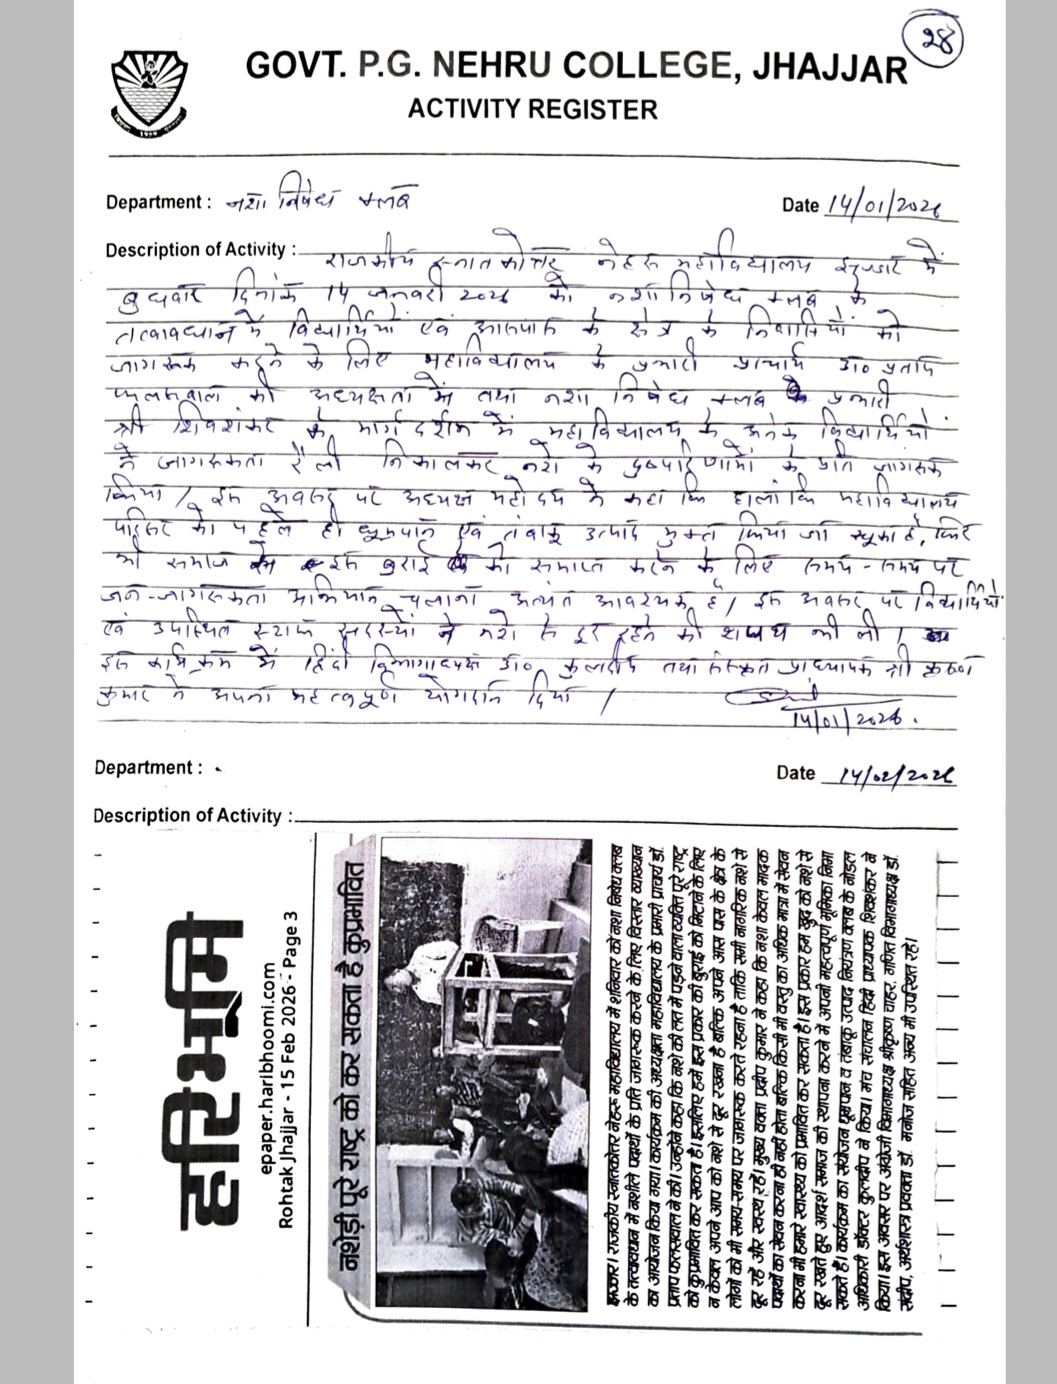 28
GOVT. P.G. NEHRU COLLEGE, JHAJJAR
ACTIVITY REGISTER
Department : नशा निषेध क्लब
Date 14/01/2026
Description of Activity : राजकीय स्नातकोत्तर नेहरू महाविद्यालय झज्जर में
बुधवार दिनांक 14 जनवरी 2026 को नशा निषेध क्लब के
तत्वावधान में विद्यार्थियों एवं आसपास के क्षेत्र के निवासियों को
जागरूक करने के लिए महाविद्यालय के प्रभारी प्राचार्य डा० प्रताप
फलसवाल की अध्यक्षता में तथा नशा निषेध क्लब के प्रभारी
श्री शिवशंकर के मार्गदर्शन में महाविद्यालय के अनेक विद्यार्थियों
ने जागरूकता रैली निकालकर नशे के दुष्परिणामों के प्रति जागरूक
किया / इस अवसर पर अध्यक्ष महोदय ने कहा कि हालांकि महाविद्यालय
परिसर को पहले ही धूम्रपान एवं तंबाकू उत्पाद मुक्त किया जा चुका है, फिर
भी समाज से इस बुराई को समाप्त करने के लिए समय-समय पर
जन-जागरूकता अभियान चलाना अत्यंत आवश्यक है / इस अवसर पर विद्यार्थियों
एवं उपस्थित स्टाफ सदस्यों ने नशे से दूर रहने की शपथ भी ली /
इस कार्यक्रम में हिंदी विभागाध्यक्ष डा० कुलदीप तथा संस्कृत प्राध्यापक श्री कृष्ण
कुमार ने अपना महत्वपूर्ण योगदान दिया /
14/01/2026.
Department :
Date 14/02/2026
Description of Activity :
हरिभूमि
epaper.haribhoomi.com
Rohtak Jhajjar - 15 Feb 2026 - Page 3
नशेड़ी पूरे राष्ट्र को कर सकता है कुप्रभावित
झज्जर। राजकीय स्नातकोत्तर नेहरू महाविद्यालय में शनिवार को नशा निषेध क्लब
के तत्वावधान में नशीले पदार्थों के प्रति जागरूक करने के लिए विस्तार व्याख्यान
का आयोजन किया गया। कार्यक्रम की अध्यक्षता महाविद्यालय के प्रभारी प्राचार्य डॉ.
प्रताप फलसवाल ने की। उन्होंने कहा कि नशे की लत में पड़ने वाला व्यक्ति पूरे राष्ट्र
को कुप्रभावित कर सकता है। इसलिए हमें इस प्रकार की बुराई को मिटाने के लिए
न केवल अपने आप को नशे से दूर रखना है बल्कि अपने आस पास के क्षेत्र के
लोगों को भी समय-समय पर जागरूक करते रहना है ताकि सभी नागरिक नशे से
दूर रहें और स्वस्थ रहें। मुख्य वक्ता प्रदीप कुमार ने कहा कि नशा केवल मादक
पदार्थों का सेवन करना ही नहीं होता बल्कि किसी भी वस्तु का अधिक मात्रा में सेवन
करना भी हमारे स्वास्थ्य को प्रभावित कर सकता है। इस प्रकार हम खुद को नशे से
दूर रखते हुए आदर्श समाज की स्थापना करने में अपनी महत्वपूर्ण भूमिका निभा
सकते हैं। कार्यक्रम का संयोजन धूम्रपान व तंबाकू उत्पाद नियंत्रण क्लब के नोडल
अधिकारी डॉक्टर कुलदीप ने किया। मंच संचालन हिंदी प्राध्यापक शिवशंकर ने
किया। इस अवसर पर अंग्रेजी विभागाध्यक्ष श्रीकृष्ण चाहर, गणित विभागाध्यक्ष डॉ.
संदीप, अर्थशास्त्र प्रवक्ता डॉ. मनोज सहित अन्य भी उपस्थित रहे।